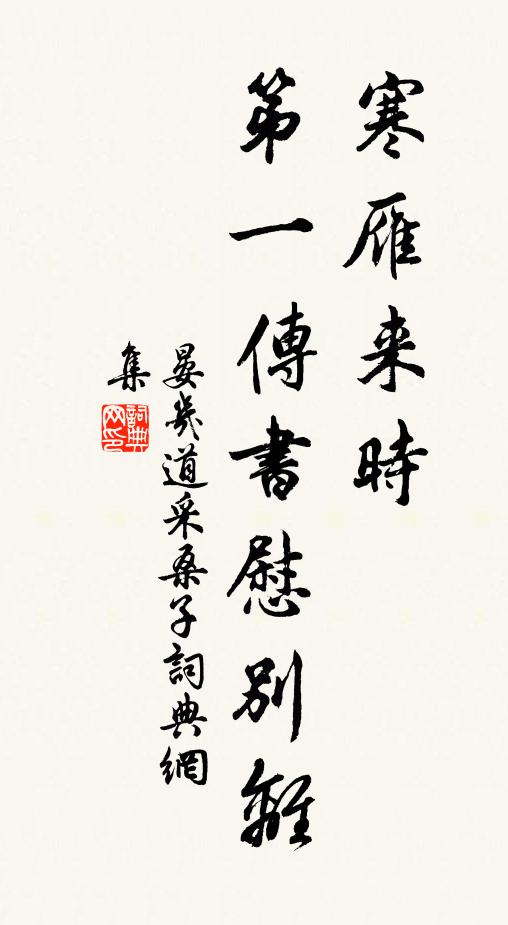 寒雁来時
第一傳書慰別離
晏幾道采桑子詞典網
集
詞典网印